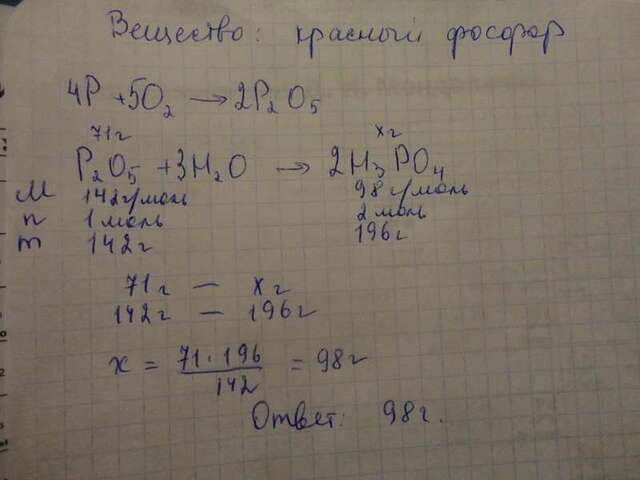 Вещество: красный фосфор
4P + 5O₂ → 2P₂O₅
71г xг
P₂O₅ + 3H₂O → 2H₃PO₄
M 142г/моль 98г/моль
n 1моль 2моль
m 142г 196г
71г — xг
142г — 196г
x = 71·196 / 142 = 98г
Ответ: 98г.